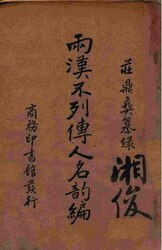 莊鼎彝纂錄
兩漢不列傳人名韵編
商務印書館發行
湘俊